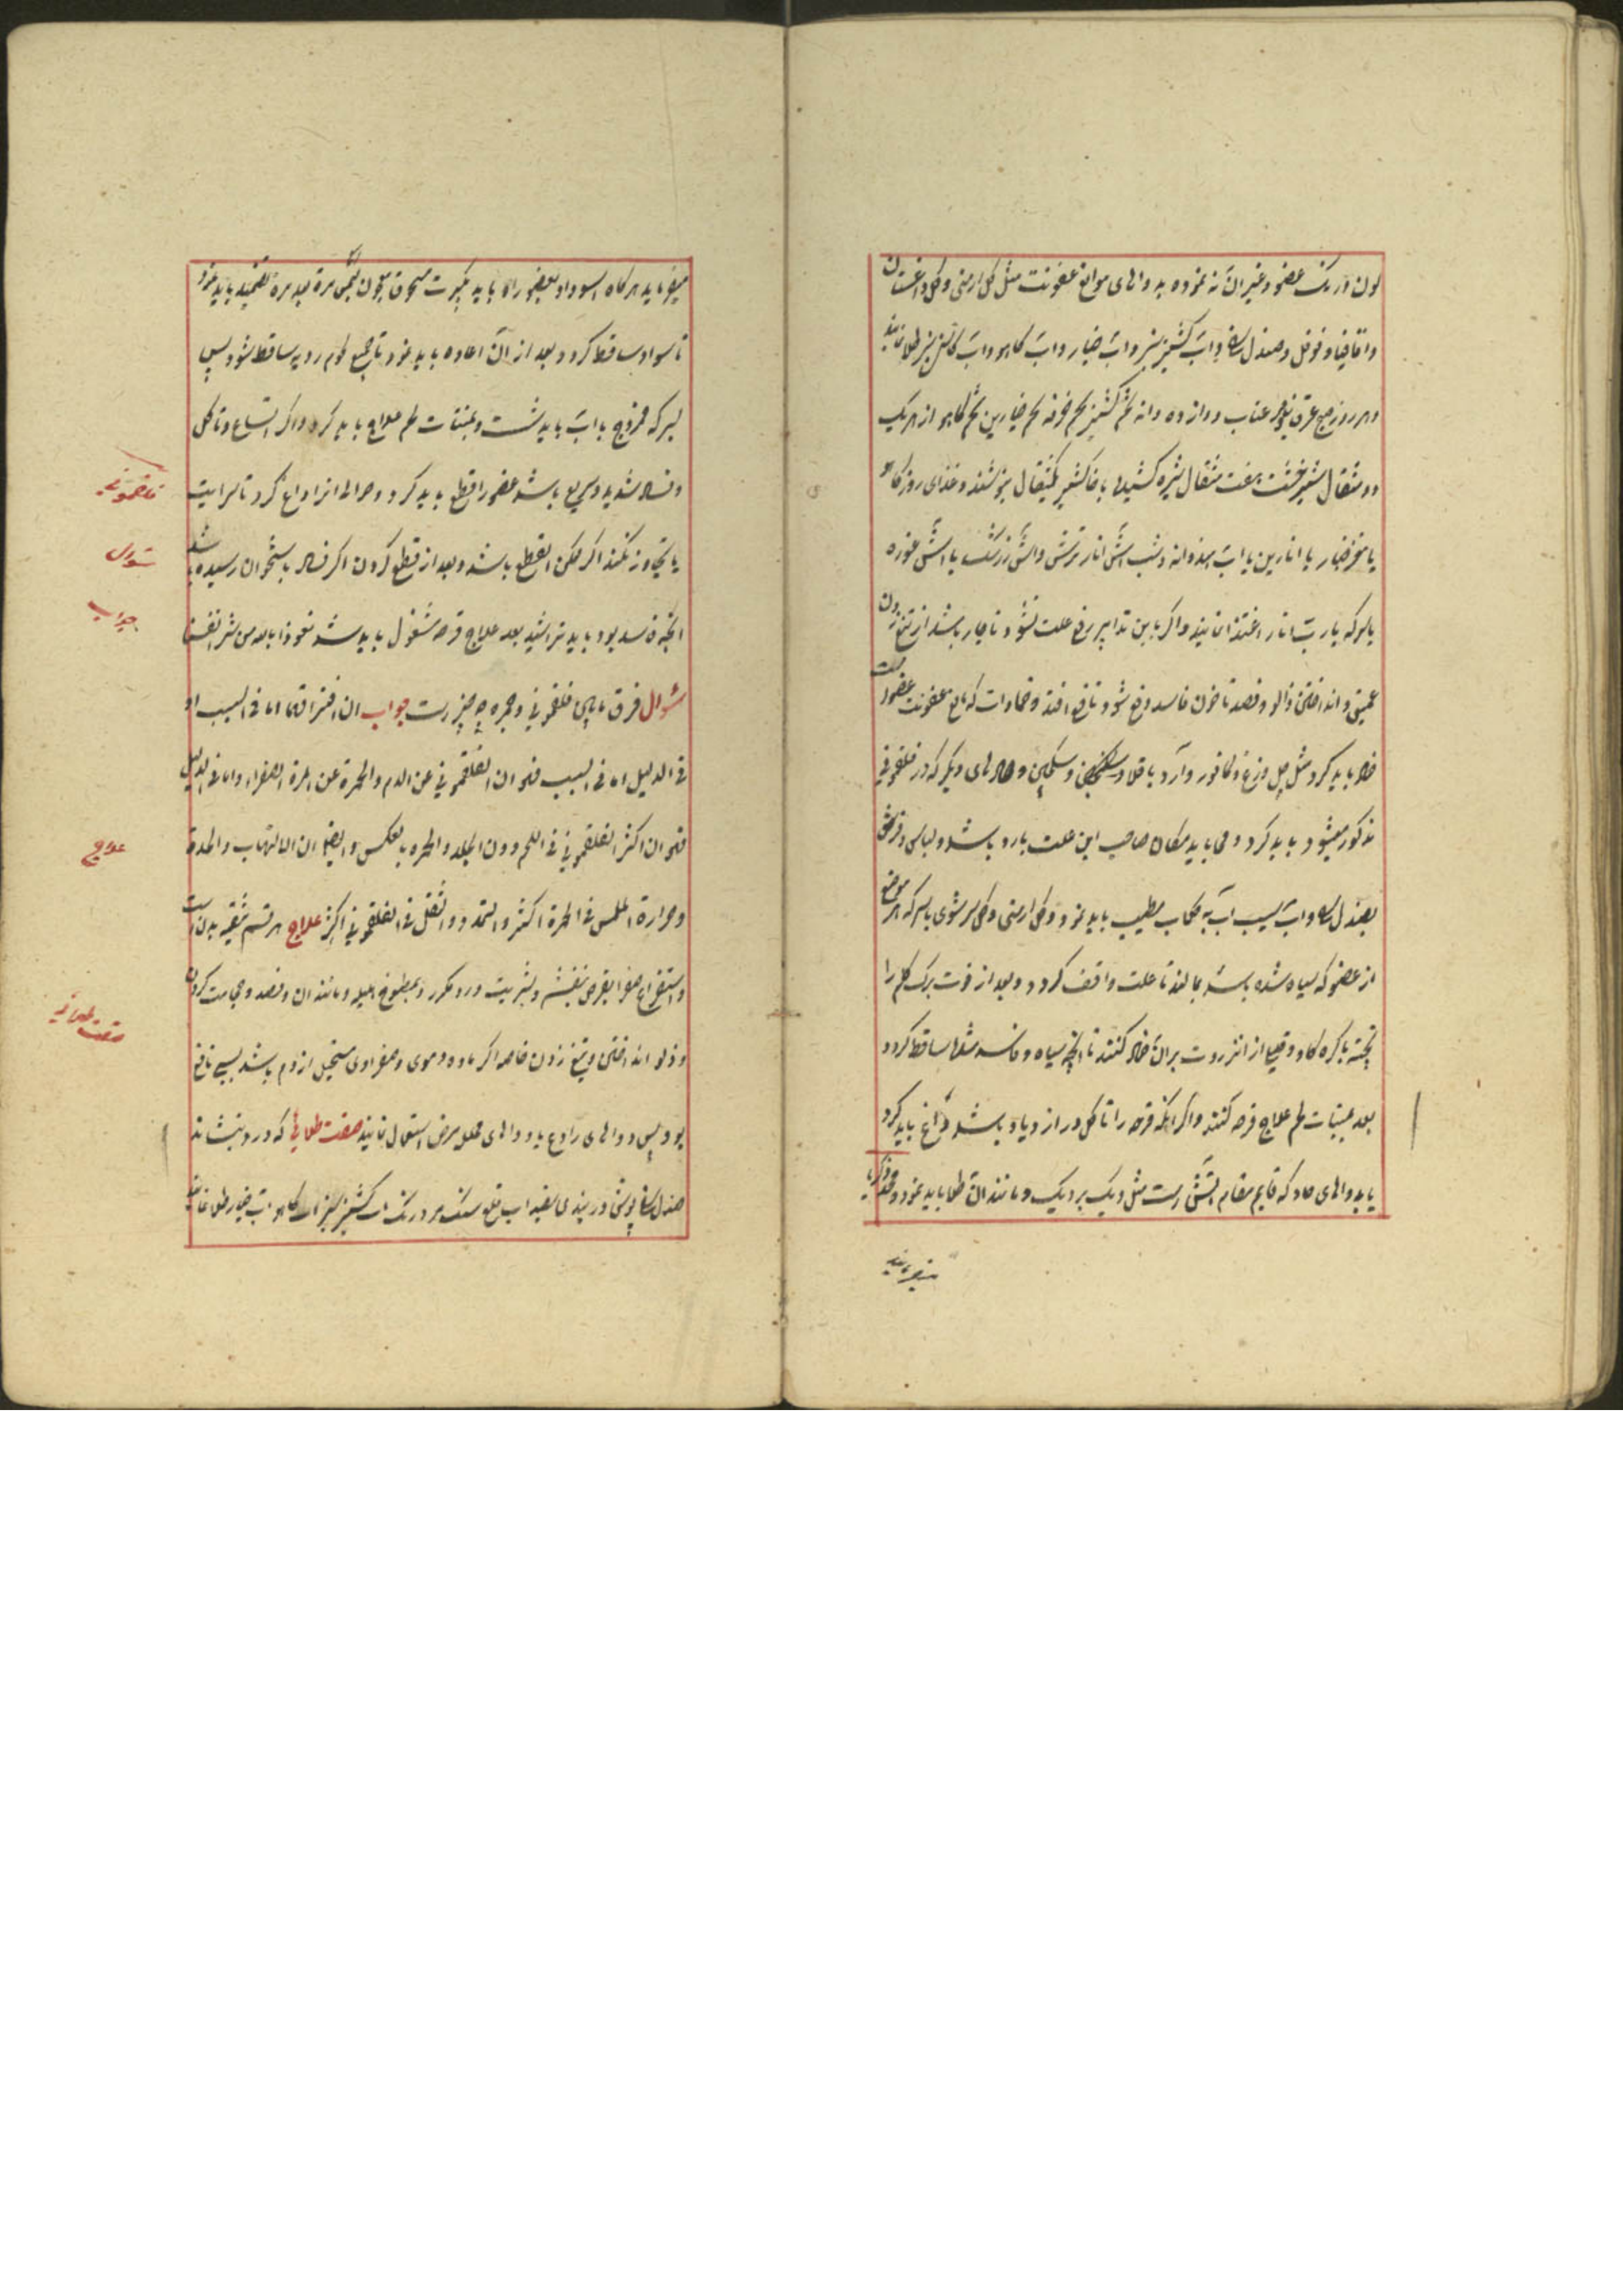 لون و رنگ عضو و غیر آن نموده به دواهای موانع عفونت مثل گل ارمنی و گل داغستان
و اقاقیا و فوفل و صندل و آب کشنیز سبز و آب خیار و آب کاهو و آب کاسنی سبز طلا نمایند
و هر روز صبح عرق عناب دوازده دانه تخم کشنیز تخم خرفه تخم خیارین تخم کاهو از هر یک
دو مثقال شیرخشت هفت مثقال شیره کشیده با خاکشیر یکمثقال بنوشند و غذای روز کاهو
یا مغز خیار یا انارین یا آب هندوانه و شب آش انار ترش و آش زرشک یا آش غوره
یا سرکه یا رب انار اغتذا نمایند و اگر باین تدابیر رفع علت نشود و ناچار باشد از تیغ زدن
عمیق و انداختن زالو و فصد تا خون فاسد دفع شود و نافع افتد و ضمادات که مانع عفونت عضو است
ضماد باید کرد مثل و کافور و آرد باقلا و سکنجبین و دیگر که در فلغمونی
مذکور میشود باید کرد و می باید مکان صاحب این علت بارد باشد و لباس و فرش
بصندل و آب سیب آب به گلاب مطیب باید نمود و گل ارمنی و گل سرشوی با سرکه هر موضع
از عضو که سیاه شده باشد بمالند تا علت واقف گردد و بعد از برگ کلم را
پخته با کره گاو و قلیلی از انزروت بر آن ضماد کنند تا آنچه سیاه و فاسد شده ساقط گردد
بعد بمنبتات لحم علاج قرحه کنند و اگر آنکه قرحه را تاکل در ازدیاد باشد داغ باید کرد
یا بدواهای حاد که قایم مقام آتش است مثل دیک بردیک و مانند آن طلا باید نمود و
میفرماید
میفرماید هرگاه اسوداد بعضو راه یابد بکبرت مسحوق چون مرة بعد مرة تضمید باید نمود
تا سواد ساقط گردد و بعد از آن اعاده باید نمود تا جمیع لحم ردیه ساقط شود پس
بسرکه ممزوج با آب باید شست و بمنبتات لحم علاج باید کرد و اگر اتساع و تاکل
و فساد شدید و سریع باشد عضو را قطع باید کرد و حوالی انرا داغ کرد تا سرایت
یا تجاوز نکند اگر ممکن القطع باشد و بعد از قطع کردن اگر فساد باستخوان رسیده باشد
آنچه فاسد بود باید تراشید بعد بعلاج قرحه مشغول باید شد نعوذ بالله من شر انفسنا
سؤال فرق مابین فلغمونی و حمره چه چیز است جواب ان افتراقهما اما فی السبب او
فی الدلیل اما فی السبب فهو ان الفلغمونی عن الدم والحمرة عن المرة الصفراء واما فی الدلیل
فهو ان اکثر الفلغمونی فی اللحم دون الجلد والحمره بالعکس وایضا ان الالتهاب والحدة
وحرارة الملمس فی الحمرة اکثر والتمدد والثقل فی الفلغمونی اکثر علاج هر قسم تنقیه بدن است
و استفراغ صفرا بقرص بنفشه و بشربت ورد مکرر و بمطبوخ هلیله و مانند آن و فصد و حجامت کردن
و زلو انداختن و تیغ زدن خاصه اگر ماده دموی و صفراوی مستحیل از دم باشد بسی نافع
بود پس دواهای رادع یا دواهای محلل مرض استعمال نمایند صفت طلائی که درد بنشاند
صندل پوش دربندی سفیداب قلع سنگ مردارسنگ آب کشنیز سبز آب کاهو آب خیار طلا نمایند
فلغمونی
سؤال
جواب
علاج
صفت طلائی